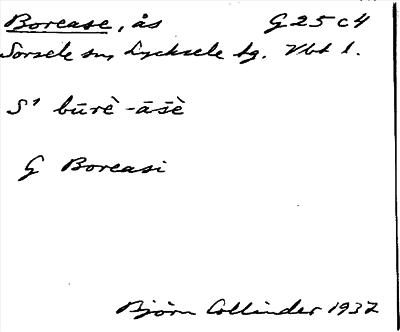 Borease, ås G 25 c 4
Sorsele sn, Lycksele tg. Vbt l.
S' būrè -āšè
G Boreasi
Björn Collinder 1937